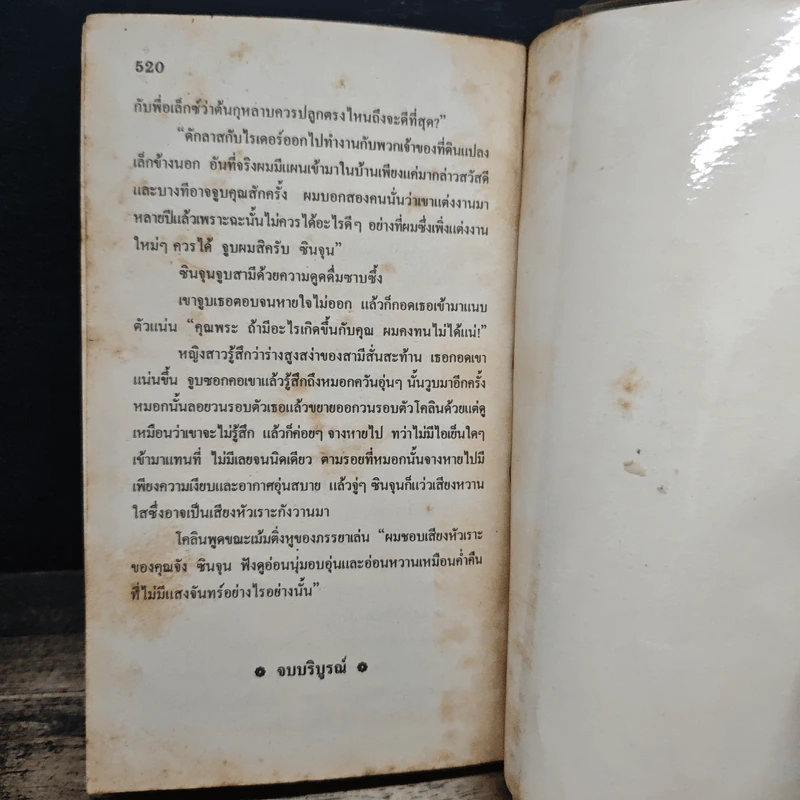 520
กับพ่อเล็กซ์ว่าต้นกุหลาบควรปลูกตรงไหนถึงจะดีที่สุด?”
“ดักลาสกับไรเดอร์ออกไปทำงานกับพวกเจ้าของที่ดินแปลง
เล็กข้างนอก อันที่จริงผมมีแผนเข้ามาในบ้านเพียงแค่มากล่าวสวัสดี
และบางทีอาจจูบคุณสักครั้ง ผมบอกสองคนนั่นว่าเขาแต่งงานมา
หลายปีแล้วเพราะฉะนั้นไม่ควรได้อะไรดีๆ อย่างที่ผมซึ่งเพิ่งแต่งงาน
ใหม่ๆ ควรได้ จูบผมสิครับ ซินจุน”
ซินจุนจูบสามีด้วยความดูดดื่มซาบซึ้ง
เขาจูบเธอตอบจนหายใจไม่ออก แล้วก็กอดเธอเข้ามาแนบ
ตัวแน่น “คุณพระ ถ้ามีอะไรเกิดขึ้นกับคุณ ผมคงทนไม่ได้แน่!”
หญิงสาวรู้สึกว่าร่างสูงสง่าของสามีสั่นสะท้าน เธอกอดเขา
แน่นขึ้น จูบซอกคอเขาแล้วรู้สึกถึงหมอกควันอุ่นๆ นั้นวูบมาอีกครั้ง
หมอกนั้นลอยวนรอบตัวเธอแล้วขยายออกวนรอบตัวโคลินด้วยแต่ดู
เหมือนว่าเขาจะไม่รู้สึก แล้วก็ค่อยๆ จางหายไป ทว่าไม่มีไอเย็นใดๆ
เข้ามาแทนที่ ไม่มีเลยจนนิดเดียว ตามรอยที่หมอกนั้นจางหายไปมี
เพียงความเงียบและอากาศอุ่นสบาย แล้วจู่ๆ ซินจุนก็แว่วเสียงหวาน
ใสซึ่งอาจเป็นเสียงหัวเราะกังวานมา
โคลินพูดขณะเม้มติ่งหูของภรรยาเล่น “ผมชอบเสียงหัวเราะ
ของคุณจัง ซินจุน ฟังดูอ่อนนุ่มอบอุ่นและอ่อนหวานเหมือนค่ำคืน
ที่ไม่มีแสงจันทร์อย่างไรอย่างนั้น”
จบบริบูรณ์